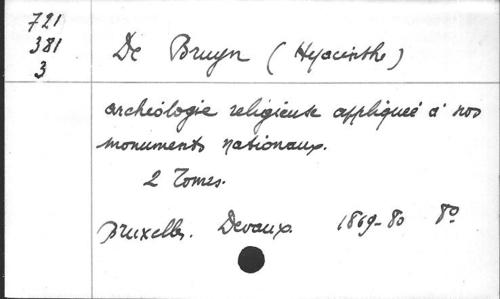 721
381
3
De Bruyn (Hyacinthe)
archéologie religieuse appliquée à nos
monuments nationaux.
2 Tomes.
Bruxelles. Devaux. 1869-80 8º